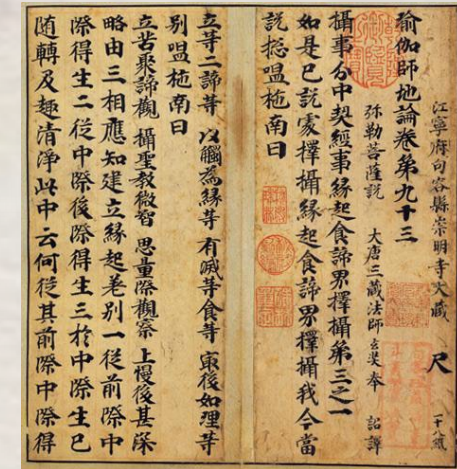 江寧府句容縣崇明寺大藏 尺 一十八紙
瑜伽師地論卷第九十三
弥勒菩薩説 大唐三藏法師玄奘奉 詔譯
攝事分中契經事緣起食諦界擇攝第三之一
如是已説處擇攝緣起食諦界擇攝我今當
説揔嗢拖南曰
立等二諦等 以觸為緣等 有滅等食等 冣後如理等
別嗢拖南曰
立苦聚諦觀 攝聖教微智 思量際觀察 上慢後甚深
略由三相應知建立緣起差別一從前際中
際得生二從中際後際得生三於中際生已
随轉及趣清淨此中云何從其前際中際得